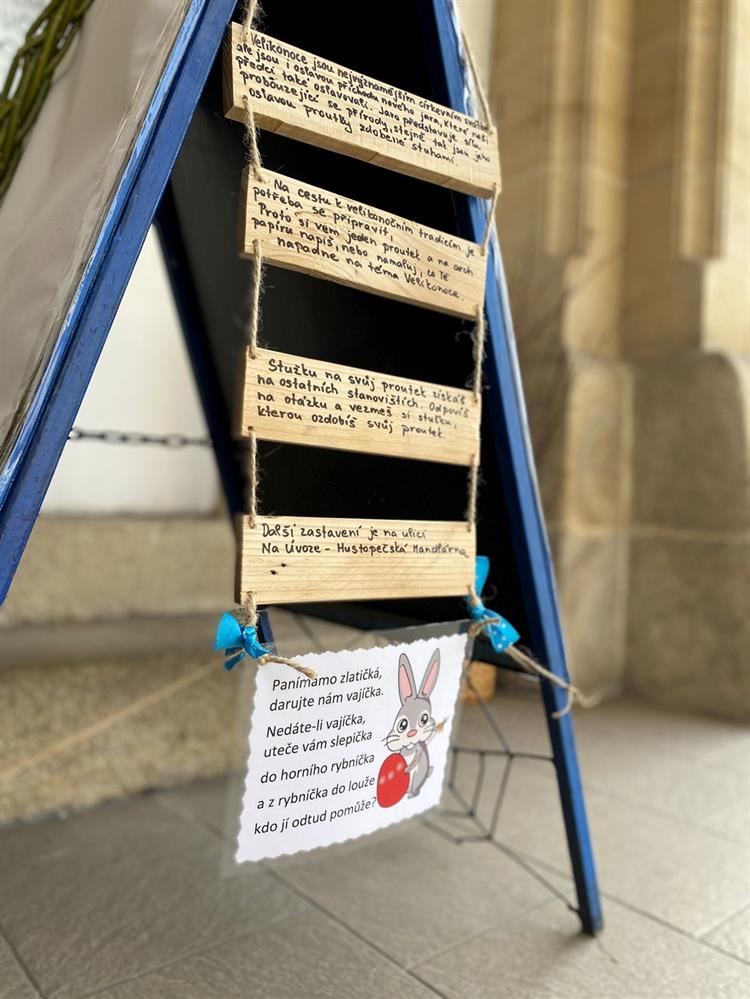 Velikonoce jsou nejvýznamějším církevním
ale jsou i oslavou příchodu nového jara, které naši
předci také oslavovali. Jaro představuje sílu
probouzející se přírody, stejně tak jsou jeho
oslavou proutky zdobené stuhami.
Na cestu k velikonočním tradicím je
potřeba se připravit.
Proto si vem jeden proutek a na arch
papíru napiš, nebo namaluj, co Tě
napadne na téma Velikonoce.
Stužku na svůj proutek získáš
na ostatních stanovištích. Odpovíš
na otázku a vezmeš si stužku,
kterou ozdobíš svůj proutek.
Další zastavení je na ulici
Na Úvoze - Hustopečská Mandlárna
Panímámo zlatičká,
darujte nám vajíčka.
Nedáte-li vajíčka,
uteče vám slepička
do horního rybníčka
a z rybníčka do louže
kdo jí odtud pomůže?